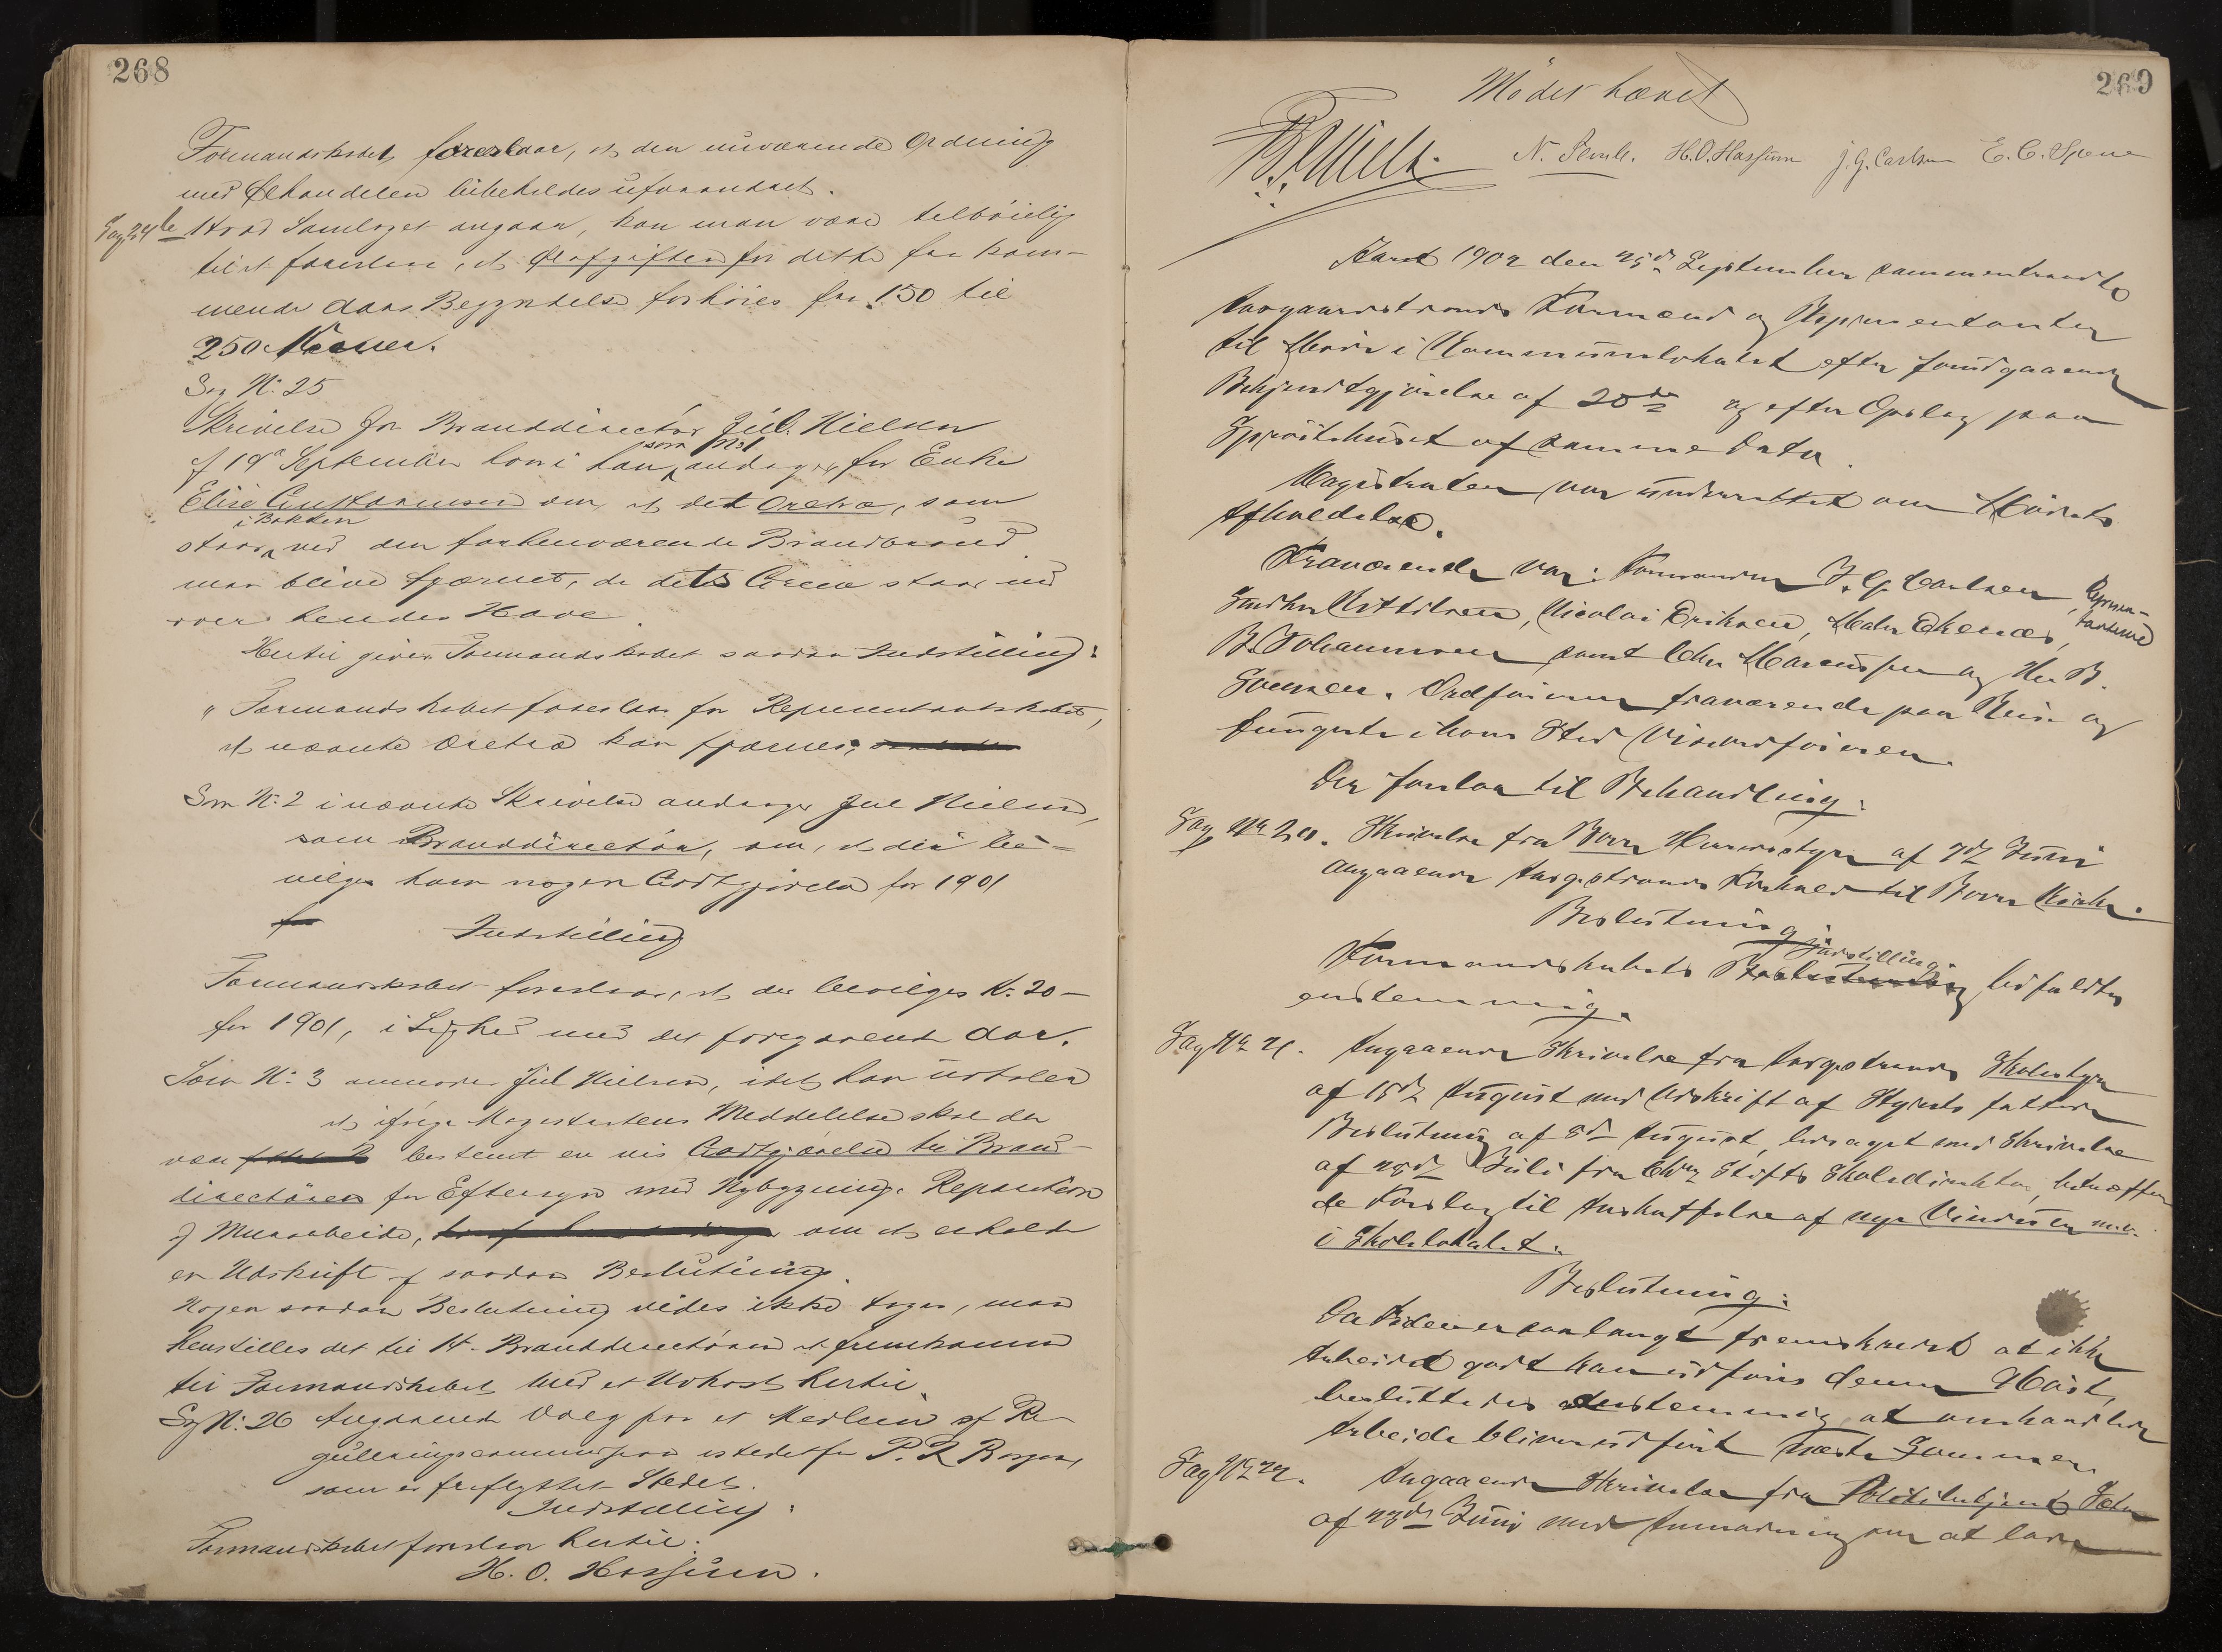 268
Formandskabet foreslaar, at den nuværende Ordning
med Ølhandelen bibeholdes uforandret.
Sag 24 b Hvad Samlaget angaar, kan man være tilbøielig
til at foreslaa, at Ølafgiften for dette fra kom-
mende Aars Begyndelse forhöies fra 150 til
250 Kroner.
Sag N: 25
Skrivelse fra Branddirectör Jul. Nielsen
af 19 September hvori han som No 1 andrager for Enke
Elise Gustavensen om, at det Oretræ, som
staar i Bakken ved den forhenværende Brandbrönd
maa blive fjærnet, da dets Grene staar ind
over hendes Have.
Hertil giver Formandskabet saadan Indstilling:
"Formandskabet foreslaar for Repræsentantskabet,
at nævnte Oretræ kan fjærnes;
Som N: 2 i nævnte Skrivelse andrager Jul Nielsen,
som Branddirectör, om, at der be-
vilges ham nogen Godtgjörelse for 1901
Indstilling
Formandskabet foreslaar, at der bevilges Kr. 20 —
for 1901, i Lighed med det foregaaende Aar.
Som N: 3 anmoder Jul Nielsen, idet han udtaler
at ifölge Magistratens Meddelelse skal der
være bestemt en vis Godtgjörelse til Brand-
directören for Eftersyn med Nybygning. Reparation
af Murarbeide, om at erholde
en Udskrift af saadan Beslutning.
Nogen saadan Beslutning vides ikke tagen, men
henstilles det til Hr. Branddirectören at fremkomme
til Formandskabet med et Udkast hertil.
Sag N: 26 Angaaende Valg paa et Medlem af Re-
guleringscommission istedetfor P. R. Borgen,
som er fraflyttet Stedet.
Indstilling:
Formandskabet foreslaar hertil:
H. O. Hassum.
269
Mödet hævet
N. H. O. Hassum J. G. Carlsen E. C.
Aaret 1902 den 25de September sammentraadte
Aasgaardstrands Formænd og Repræsentanter
til Möde i Kommunelokalet efter forudgaaende
Bekjendtgjörelse af 20de og efter Opslag paa
Spröitehuset af samme Dato.
Magistraten var underrettet om Mödets
Afholdelse.
Fraværende var: Formanden J. G. Carlsen, Repræsen-
tanterne
Kittilsen, Nicolai Eriksen,
B. Johannesen samt Chr.  og H. B.
Ordföreren fraværende paa Reise og
fungerte i hans Sted Viceordföreren.
Der forelaa til Behandling:
Sag No 20. Skrivelse fra Borre Herredstyre af 7de Juni
angaaende Aasgstrands Forhold til Borre Kirke.
Beslutning:
Formandskabets Indstilling Beslutning bifaldtes
enstemmig.
Sag No 21. Angaaende Skrivelse fra Aasgstrands Skolestyre
af 15de August med Udskrift af Styrets fattede
Beslutning af 8de August, ledsaget med Skrivelse
af 28de Juli fra Chra Stifts Skoledirektør, betræffen
de Forslag til Anskaffelse af nye Vinduer m.v.
i Skolelokalet.
Beslutning:
Da Tiden er saa langt fremskredet at ikke
Arbeidet godt kan udföres denne Höst,
besluttedes enstemmig at omhandlede
Arbeide bliver udfört næste Sommer.
Sag No 22. Angaaende Skrivelse fra Politibetjent
af 23de Juni med Anmodning om at lade